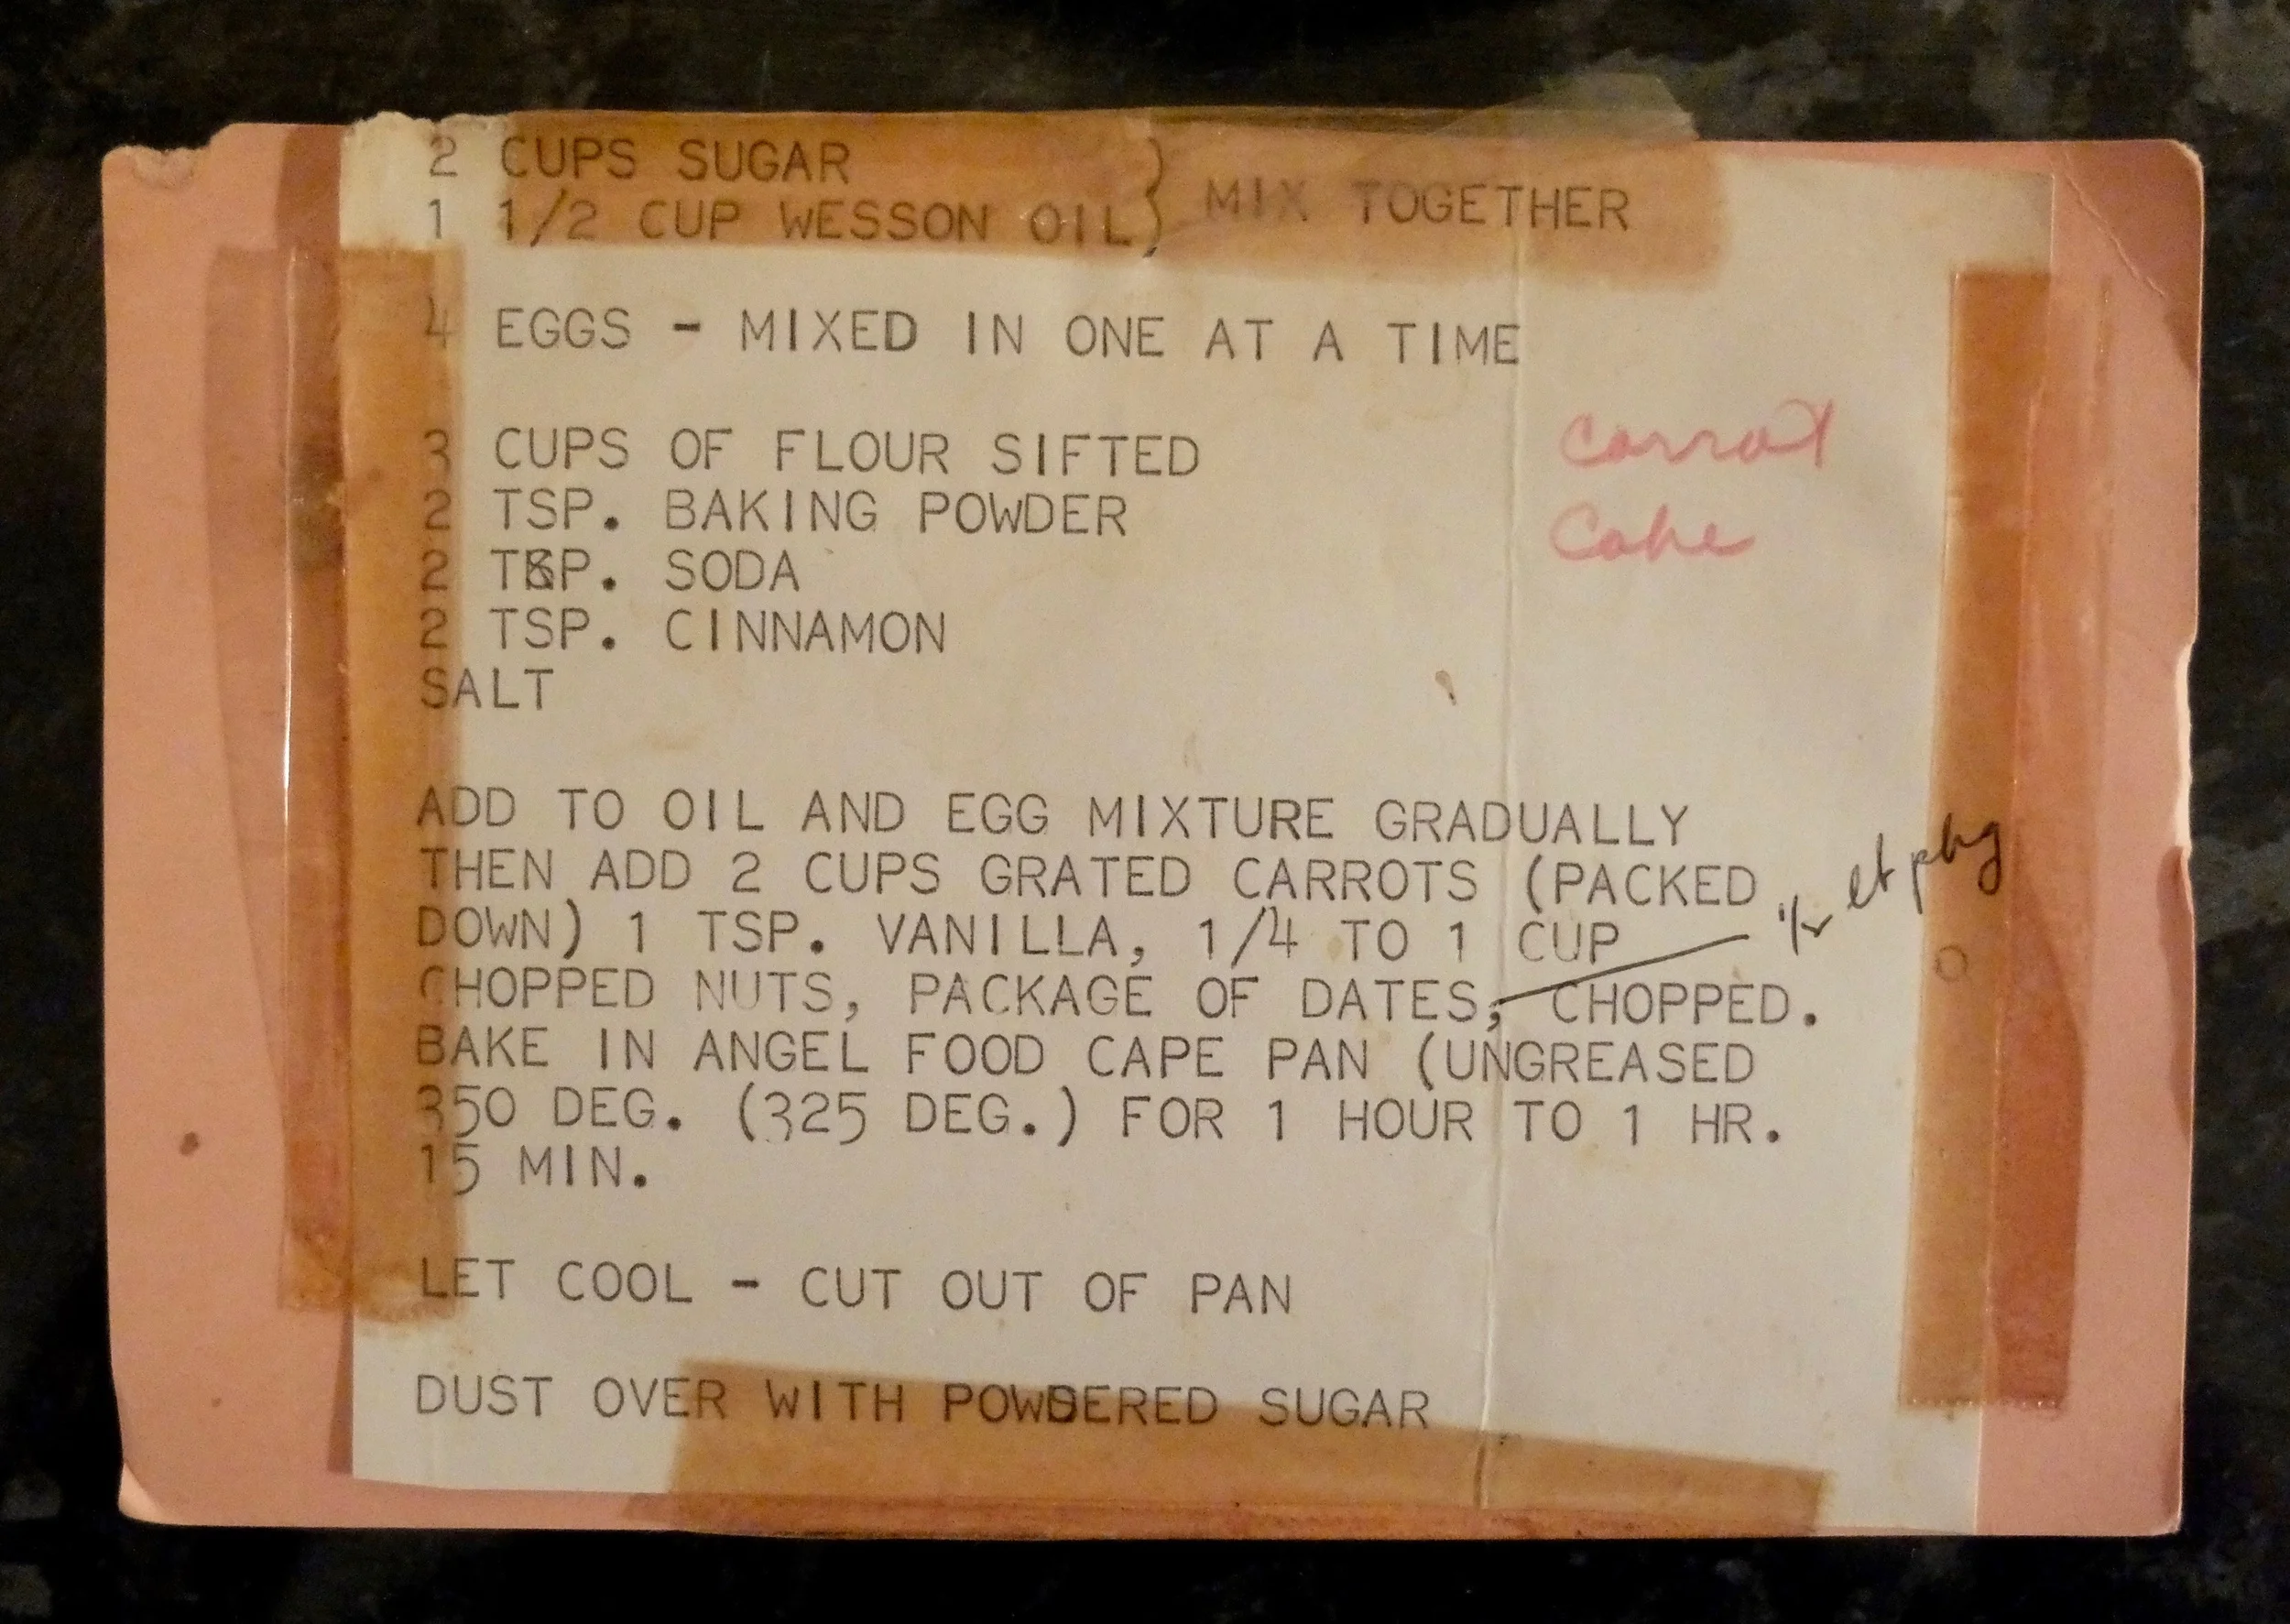 2 CUPS SUGAR
1 1/2 CUP WESSON OIL} MIX TOGETHER
4 EGGS - MIXED IN ONE AT A TIME
3 CUPS OF FLOUR SIFTED
2 TSP. BAKING POWDER
2 TSP. SODA
2 TSP. CINNAMON
SALT
carrot
Cake
ADD TO OIL AND EGG MIXTURE GRADUALLY
THEN ADD 2 CUPS GRATED CARROTS (PACKED
DOWN) 1 TSP. VANILLA, 1/4 TO 1 CUP
CHOPPED NUTS, PACKAGE OF DATES, CHOPPED.
1/2
BAKE IN ANGEL FOOD CAPE PAN (UNGREASED
350 DEG. (325 DEG.) FOR 1 HOUR TO 1 HR.
15 MIN.
LET COOL - CUT OUT OF PAN
DUST OVER WITH POWDERED SUGAR